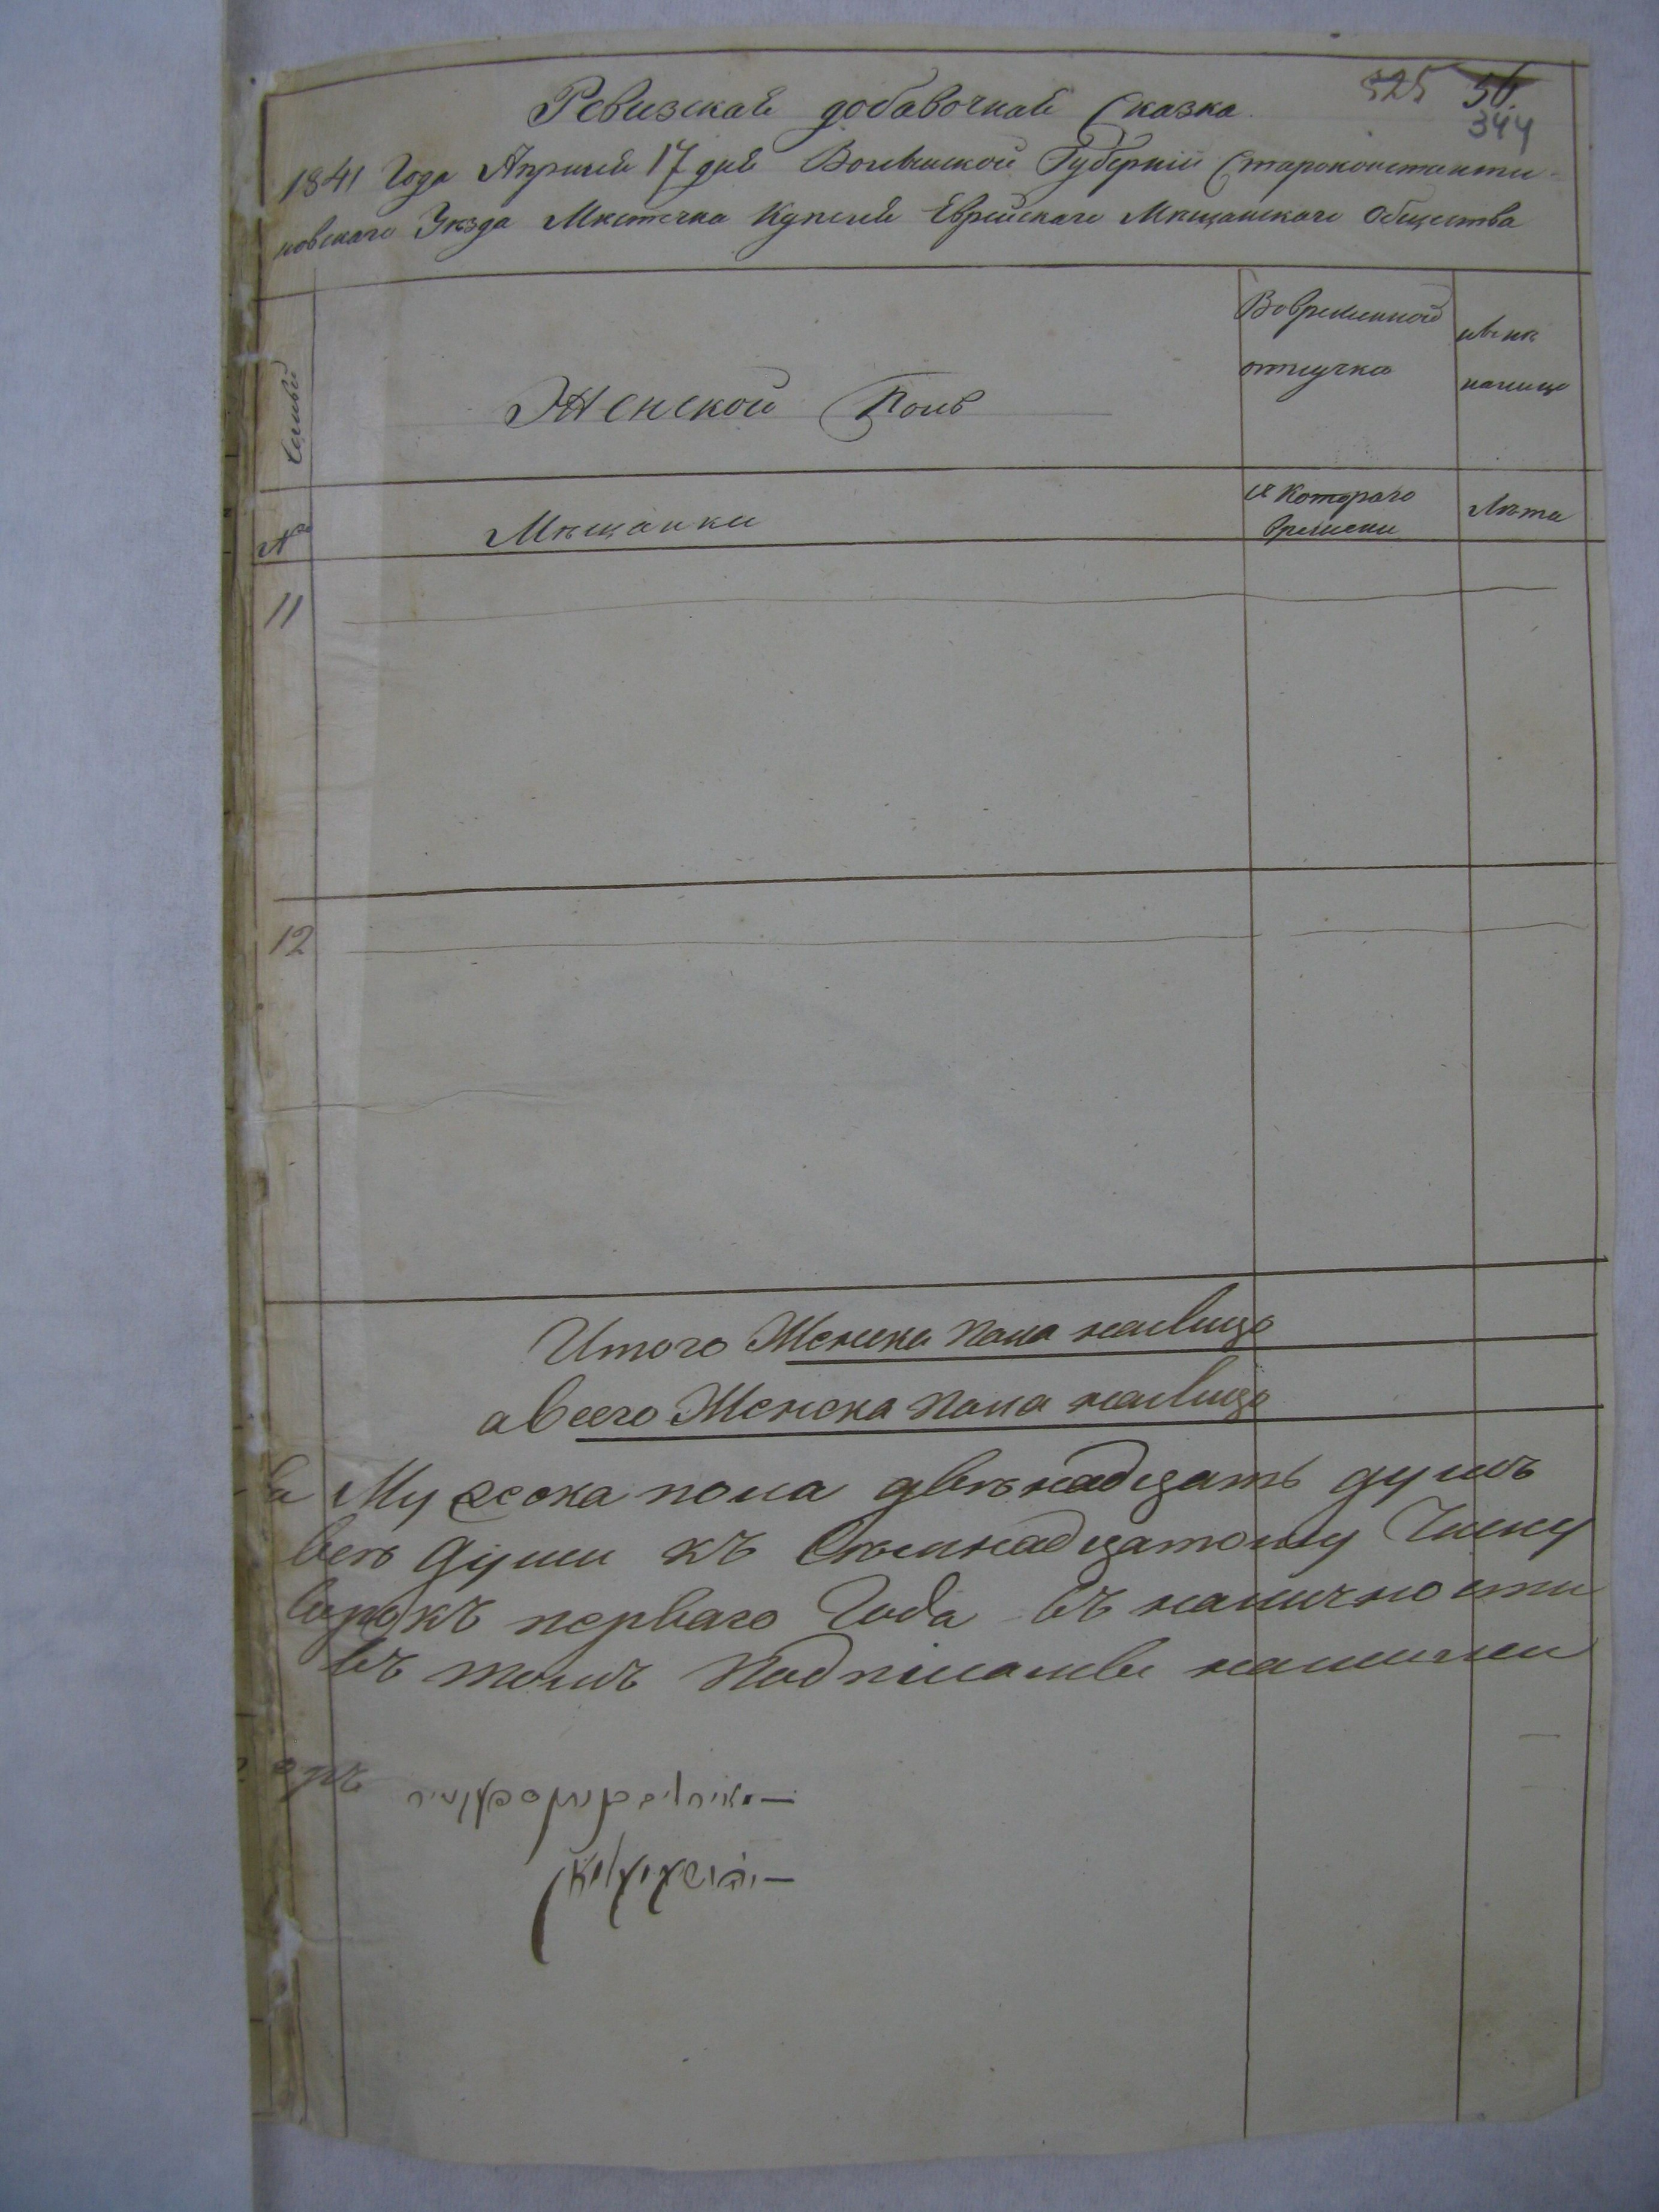 325 56.
344
Ревизская добавочная Сказка.
1841 Года Апрѣля 17 дня Волынской Губерніи Староконстанти-
новскаго Уѣзда Мѣстечка Купеля Еврейскаго Мѣщанскаго Общества
Семьи
Женской Полъ
Во временной
отлучкѣ
нынѣ
на лицо
№
Мѣщанки
съ Котораго
времени
Лѣта
11
12
Итого Женска пола налицо
а всего Женска пола налицо
Мужеска пола двѣнадцать душъ
души къ Семнадцатому Числу
перваго Года въ наличности
въ томъ Подписалвь